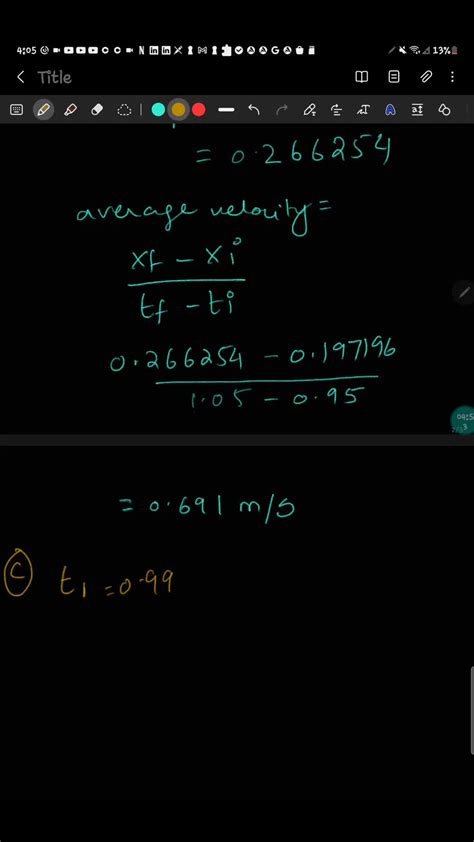 4:05
13%
Title
= 0.266254
average velocity =
xf - xi
tf - ti
0.266254 - 0.197196
1.05 - 0.95
= 0.691 m/s
C t1 = 0.99